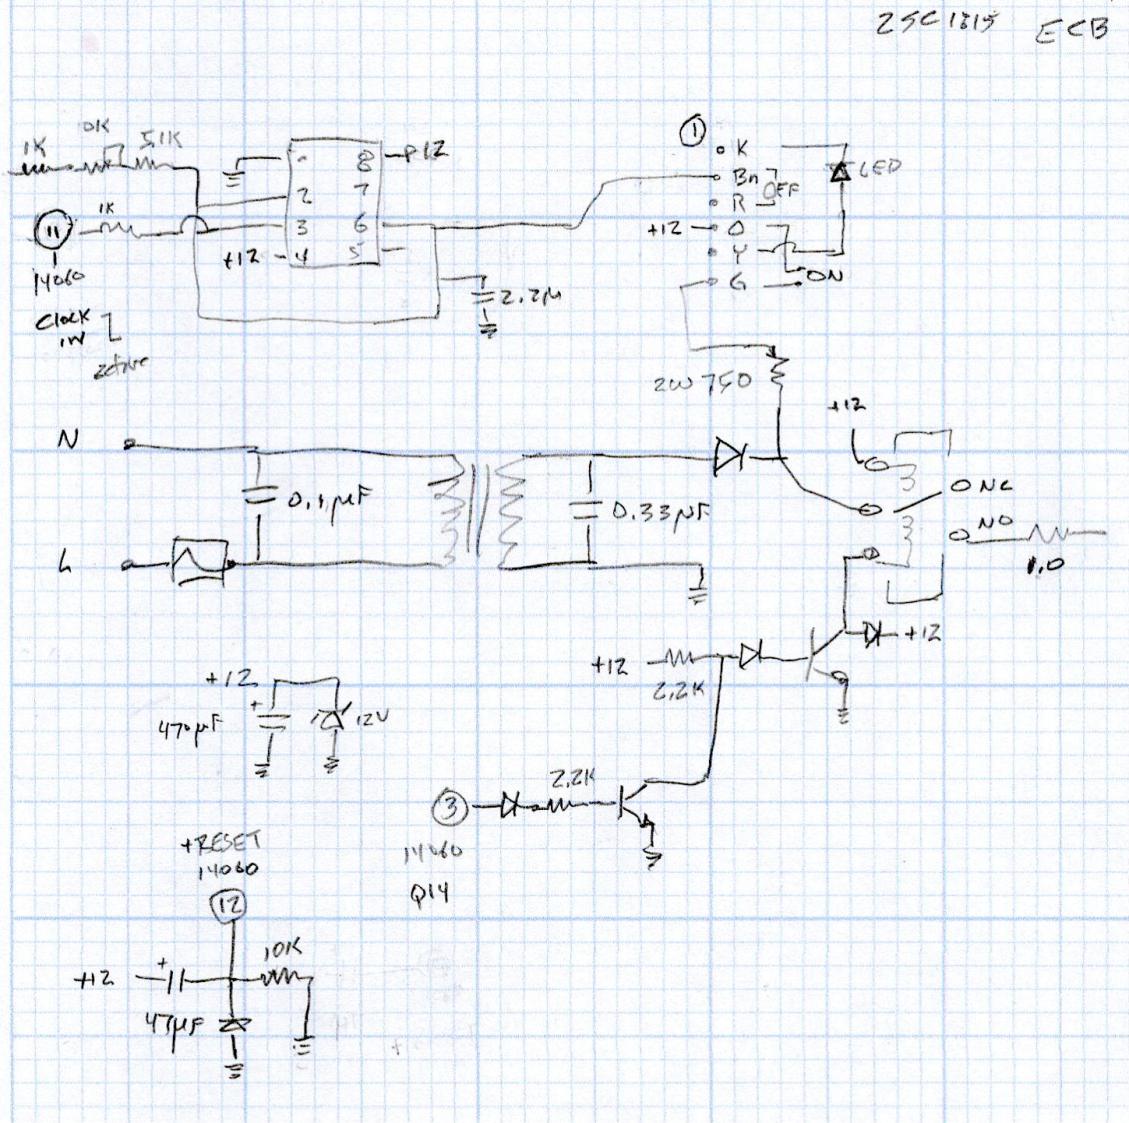 2SC1815 ECB
1K 5.1K
8 +12
2 7
1K
11 3 6
+12 4 5
14060
Clock
in
active
2.2µ
1
K
Bn OFF
R
+12 O
Y
G ON
LED
2W 750
+12
N
0.1µF
L
0.33µF
NC
NO
1.0
+12
2.2K
+12
+12
470µF
12V
2.2K
3
14060
Q14
+RESET
14060
12
10K
+12 +
47µF